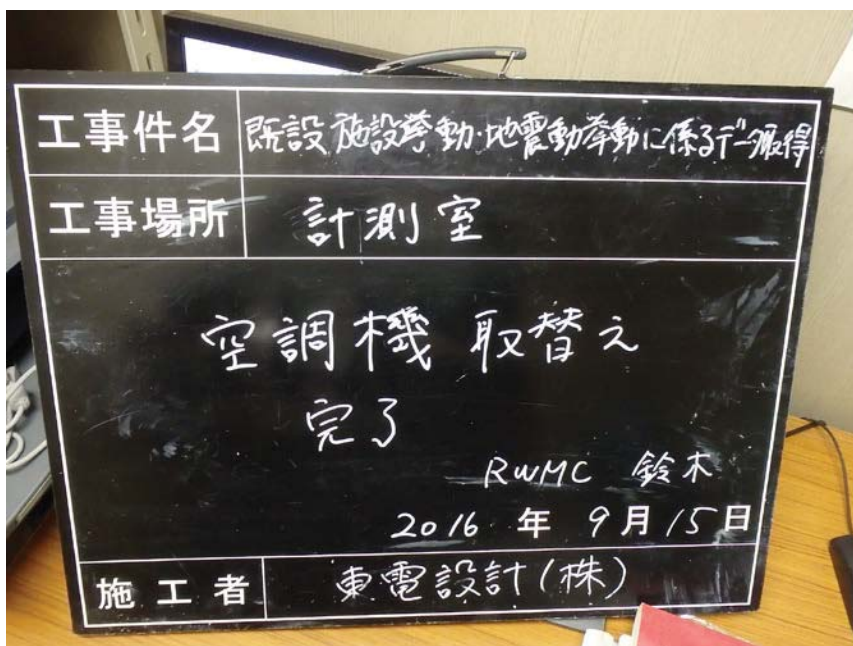 工事件名 既設施設挙動・地震動挙動に係るデータ取得
工事場所 計測室
空調機 取替え
完了
RWMC 鈴木
2016 年 9月15日
施工者 東電設計(株)